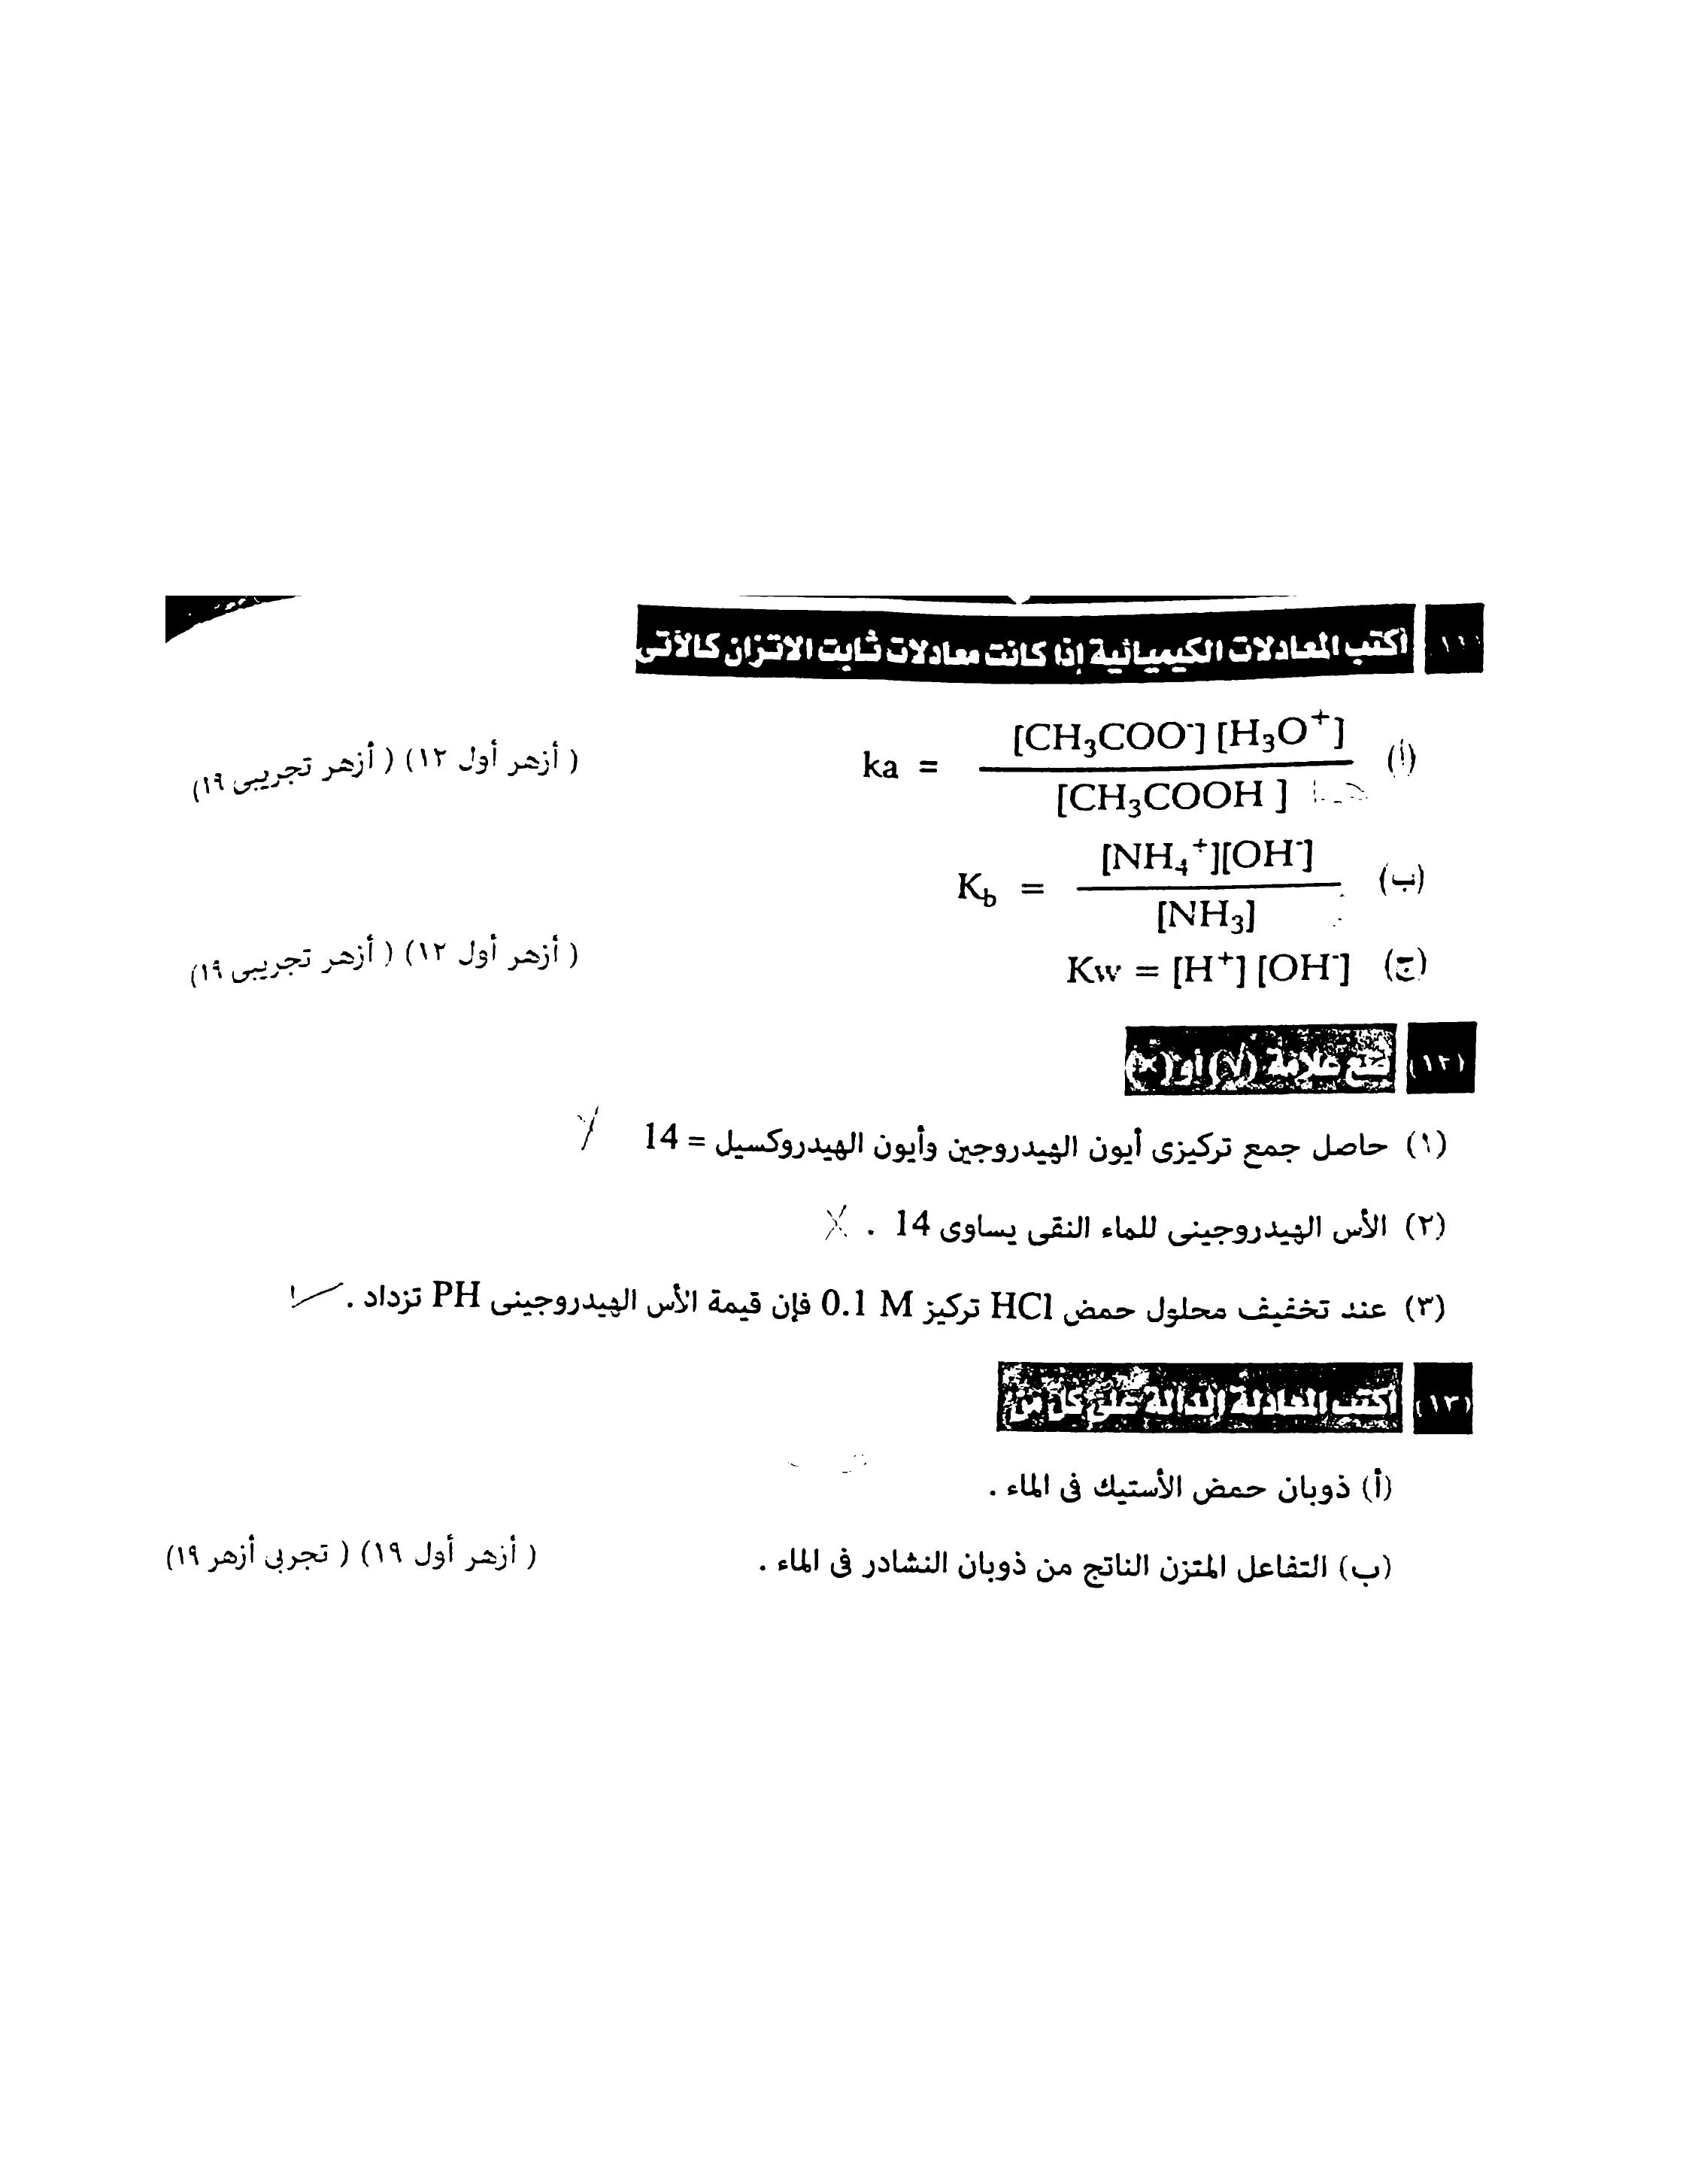 (١١) اكتب المعادلات الكيميائية إذا كانت معادلات ثابت الاتزان كالآتى
(أ) ka = [CH₃COO⁻] [H₃O⁺] / [CH₃COOH ] ( أزهر أول ١٢) ( أزهر تجريبى ١٩)
(ب) K_b = [NH₄⁺][OH⁻] / [NH₃]
(ج) Kw = [H⁺] [OH⁻] ( أزهر أول ١٢) ( أزهر تجريبى ١٩)
(١٢) ضع علامة (√) أو (×)
(١) حاصل جمع تركيزى أيون الهيدروجين وأيون الهيدروكسيل = 14
(٢) الأس الهيدروجينى للماء النقى يساوى 14 . X
(٣) عند تخفيف محلول حمض HCl تركيز 0.1 M فإن قيمة الأس الهيدروجينى PH تزداد . ✓
(١٣) اكتب المعادلة الدالة على كل من
(أ) ذوبان حمض الأستيك فى الماء .
(ب) التفاعل المتزن الناتج من ذوبان النشادر فى الماء . ( أزهر أول ١٩) ( تجربى أزهر ١٩)